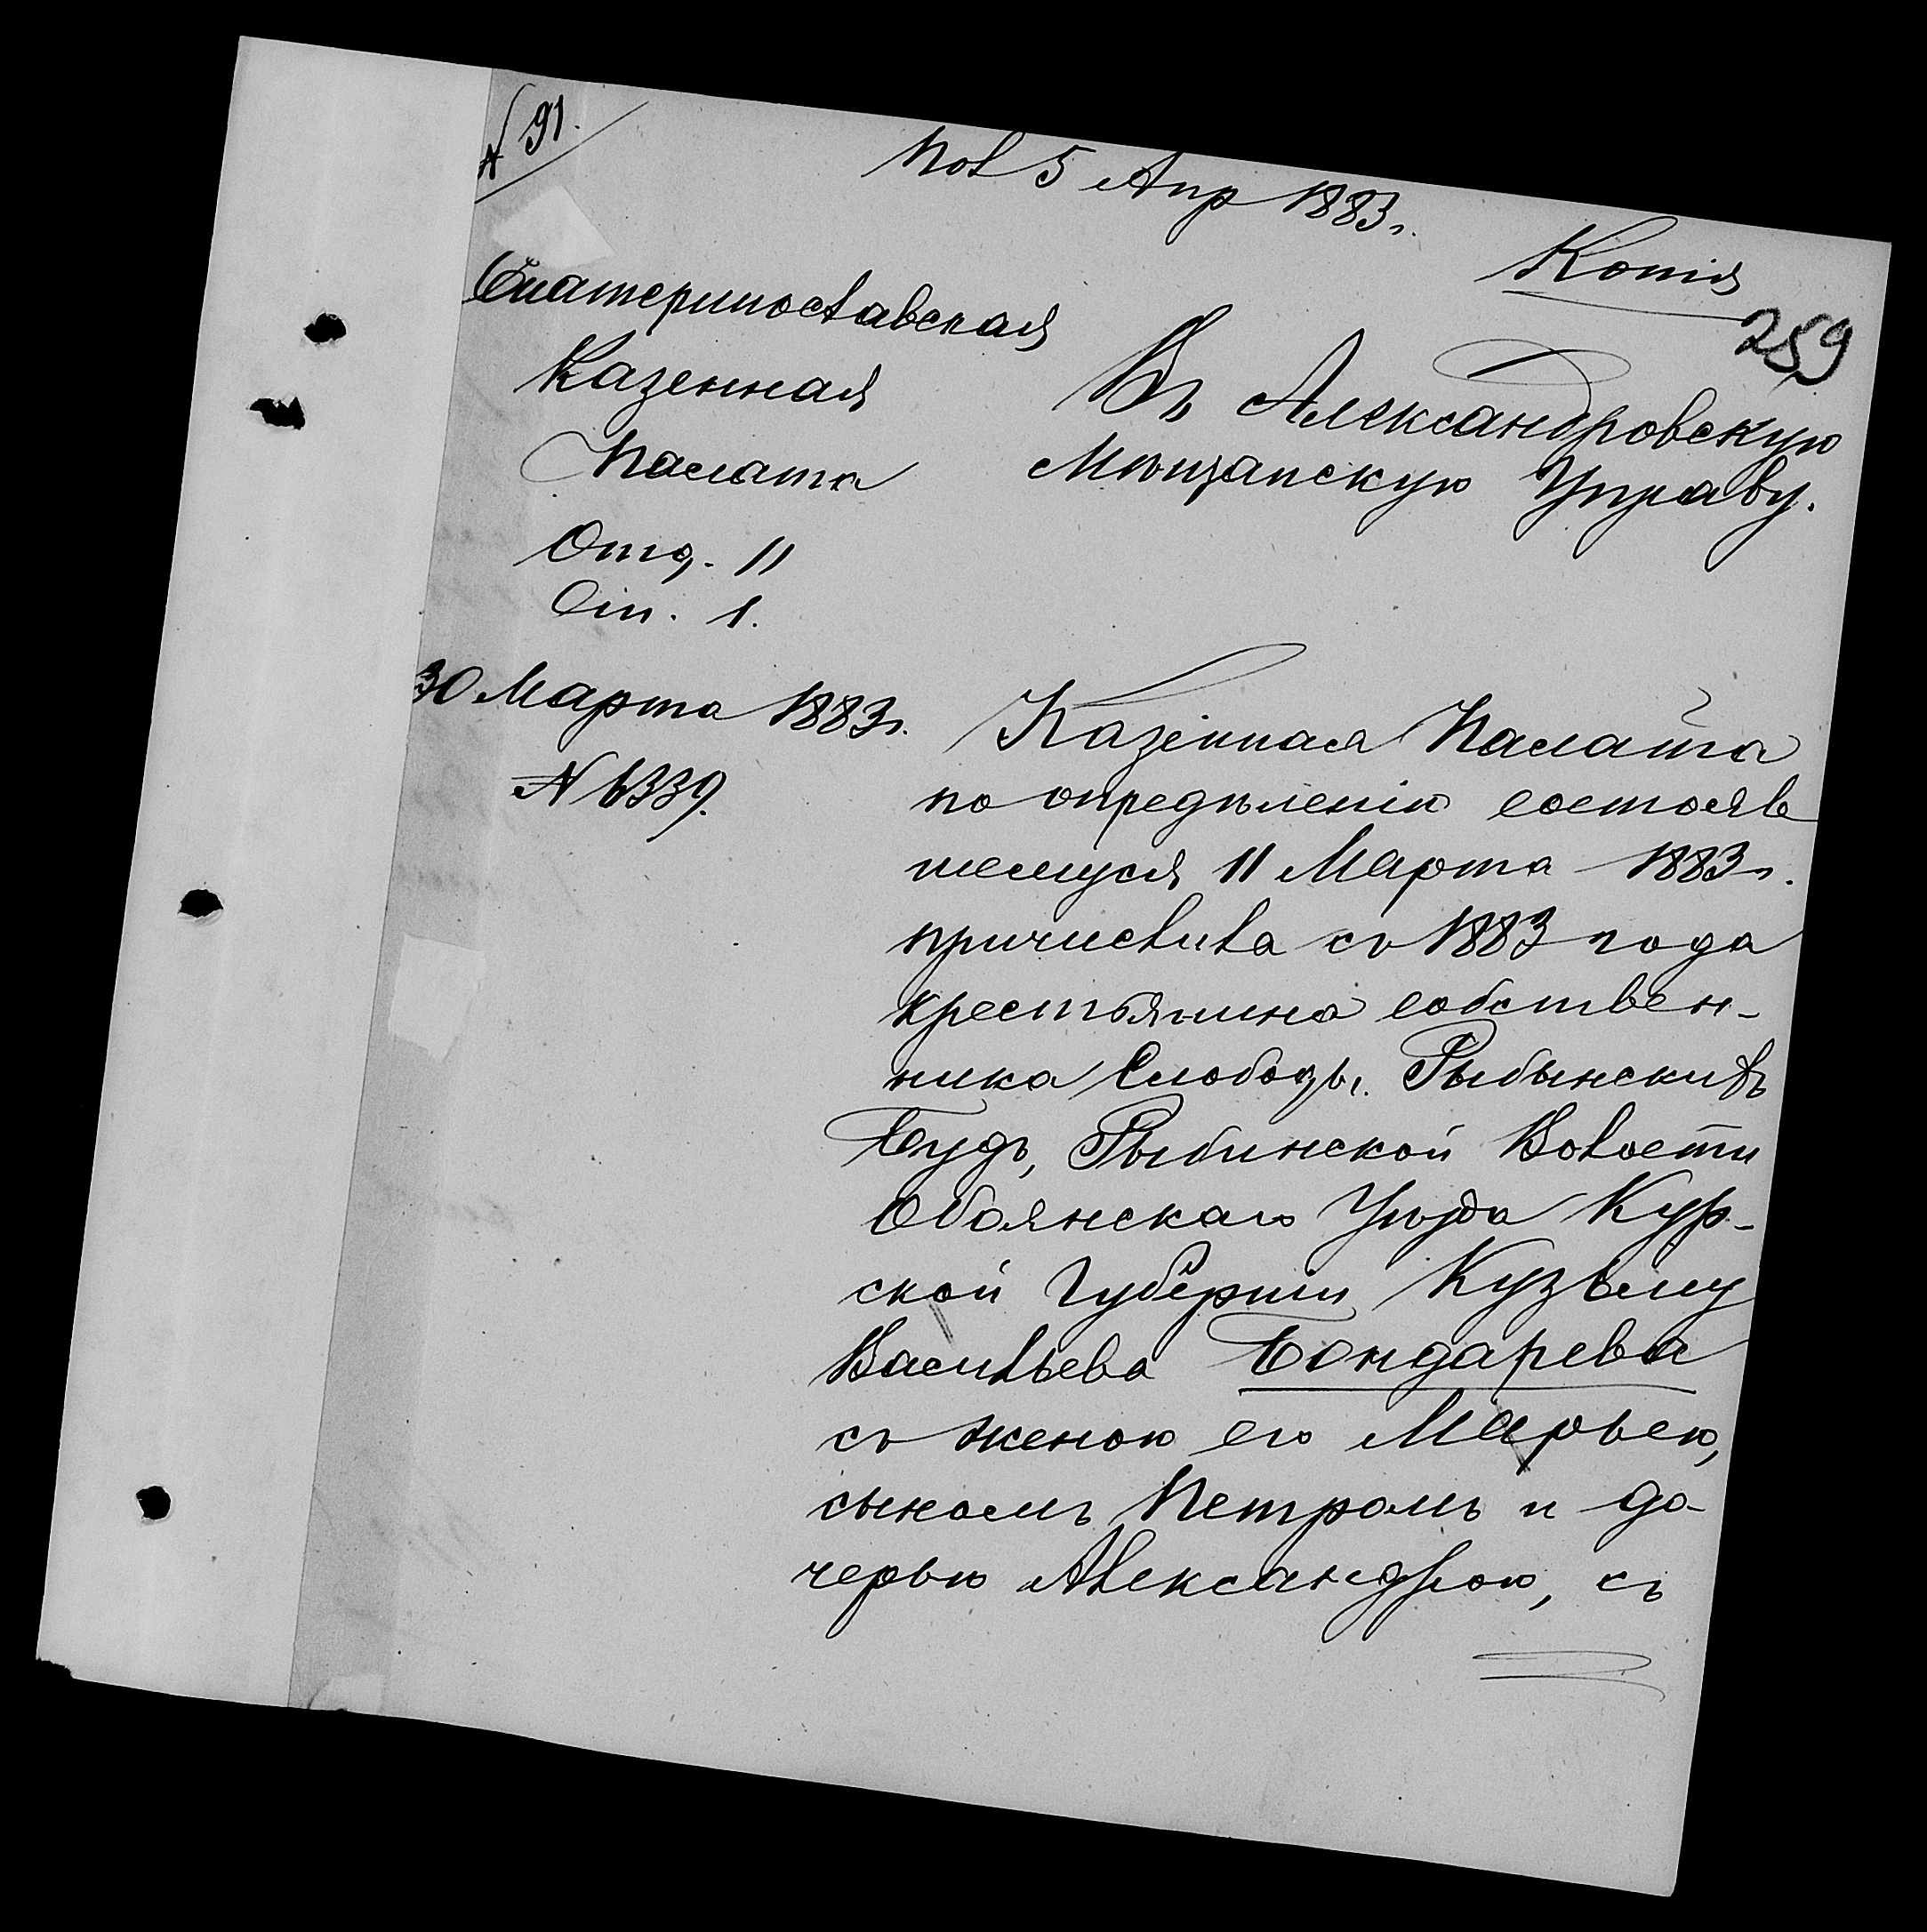 № 91.
Пол 5 Апр 1883 г.
Копія
259
Екатеринославская
Казенная
Палата
Отд. II
Ст. 1.
30 Марта 1883 г.
№ 6339.
Въ Александровскую
Мѣщанскую Управу.
Казенная Палата
по опредѣленію состояв
шемуся 11 Марта 1883 г.
причислила съ 1883 года
крестьянина собствен-
ника Слободы Рыбынскихъ
Будъ, Рыбинской Волости
Обоянскаго Уѣзда Кур-
ской Губерніи Кузьму
Васильева Бондарева
съ женою его Марьею,
сыномъ Петромъ и до
черью Александрою, съ